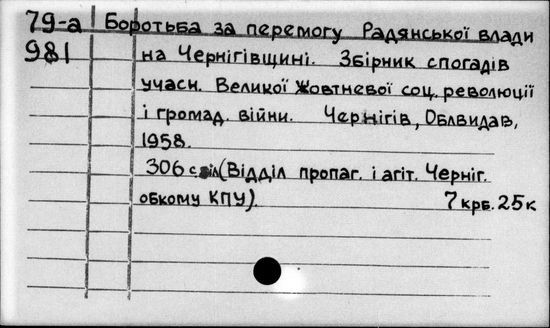 79-а Боротьба за перемогу Радянської влади
981 на Чернігівщині. Збірник спогадів
учасн. Великої Жовтневої соц. революції
і громад. війни. Чернігів, Облвидав,
1958.
306 с. іл (Відділ пропаг. і агіт. Черніг.
обкому КПУ). 7 крб. 25 к